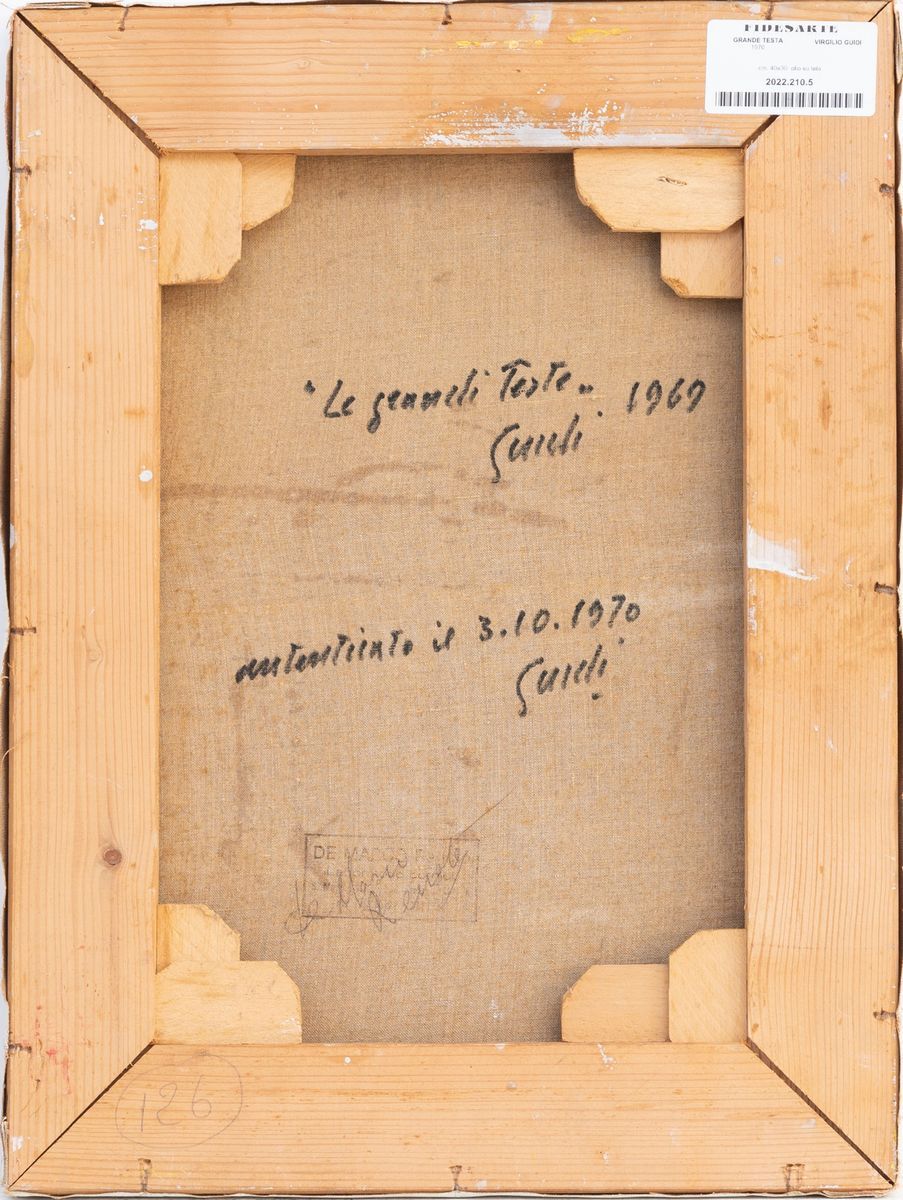 FIDESARTE
GRANDE TESTA VIRGILIO GUIDI
1970
cm. 40x30 olio su tela
2022.210.5
"Le grandi Teste" 1969
Guidi
autenticato il 3.10.1970
Guidi
DE MARCO
126